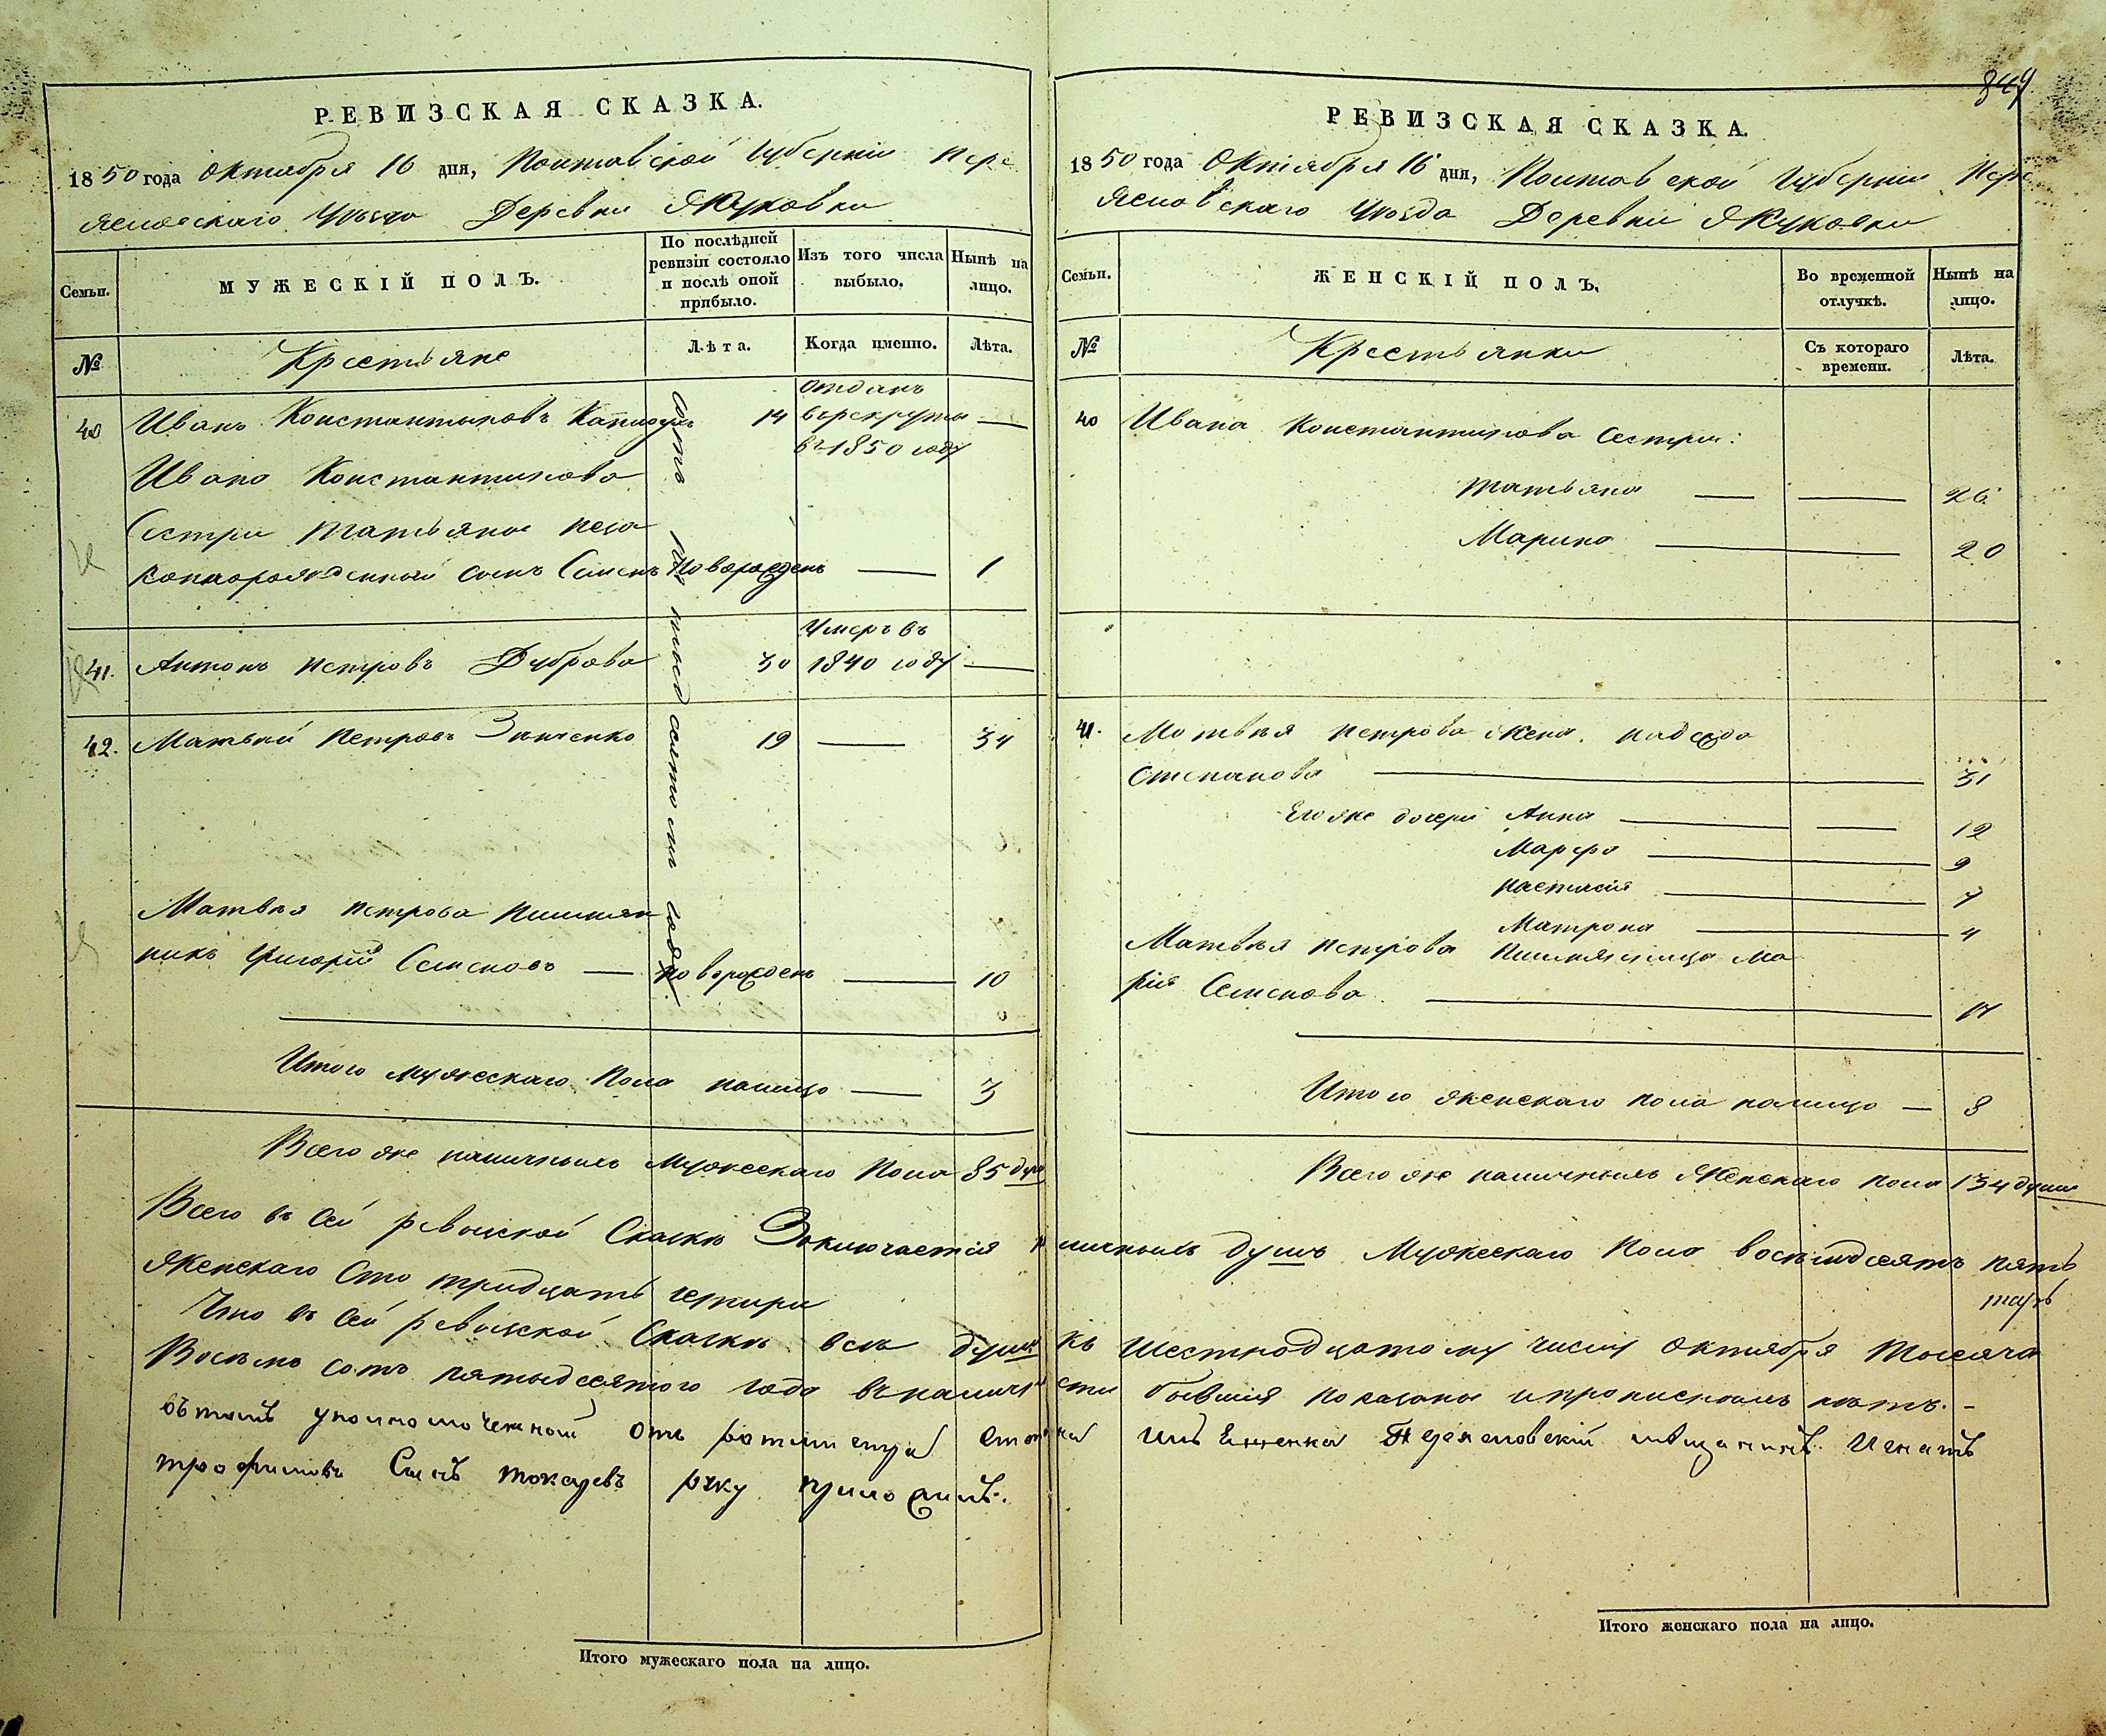 РЕВИЗСКАЯ СКАЗКА.
1850 года Октября 16 дня, Полтавской Губерніи Пере
яславскаго Уѣзда Деревни Якуковки
Семьи.
МУЖЕСКІЙ ПОЛЪ.
По послѣдней ревизіи состояло и послѣ оной прибыло.
Изъ того числа выбыло.
Нынѣ на лицо.
№
Крестьяне
Лѣта.
Когда именно.
Лѣта.
40 Иванъ Константиновъ 14 отданъ въ рекруты в 1850 году —
Ивана Константинова
Сестри Татьяны неза
коннорожденный сынъ Семенъ новорожденъ — 1
41. Антонъ Петровъ Дуброва 30 умеръ въ 1840 году —
42. Матвѣй Петровъ Зинченко 19 — 34
Матвѣя Петрова племян
никъ Григорій Семеновъ — новорожденъ — 10
Итого мужескаго пола налицо — 3
Всего же наличныхъ мужескаго пола 85 душ
РЕВИЗСКАЯ СКАЗКА.
1850 года Октября 16 дня, Полтавской Губерніи Пере
яславскаго Уѣзда Деревни Якуковки
Семьи.
ЖЕНСКІЙ ПОЛЪ.
Во временной отлучкѣ.
Нынѣ на лицо.
№
Крестьянки
Съ котораго времени.
Лѣта.
40 Ивана Константинова сестри:
Татьяна — — 26
Марина — 20
41. Матвѣя Петрова жена Надежда
Степанова — 31
Его же дочери Анна — — 12
Марфа — 9
Настасія — 7
Матрона — 4
Матвѣя Петрова племянница Ма
рія Семенова — 17
Итого женскаго пола налицо — 8
Всего же наличныхъ женскаго пола 134 души
Всего въ сей ревизской сказкѣ заключается наличныхъ душъ мужескаго пола восемдесятъ пять
женскаго сто тридцать четыри
Что въ сей ревизской сказкѣ всѣ души къ шестнадцатому числу Октября тысяча
восемь сотъ пятьдесятого года въ наличности бывшія показаны и прописныхъ нѣтъ. –
въ томъ уполномоченный отъ ротмистра Переяславскій мѣщанинъ Игнатъ
трофимовъ Сынъ токаревъ руку приложилъ.
Итого мужескаго пола на лицо.
Итого женскаго пола на лицо.